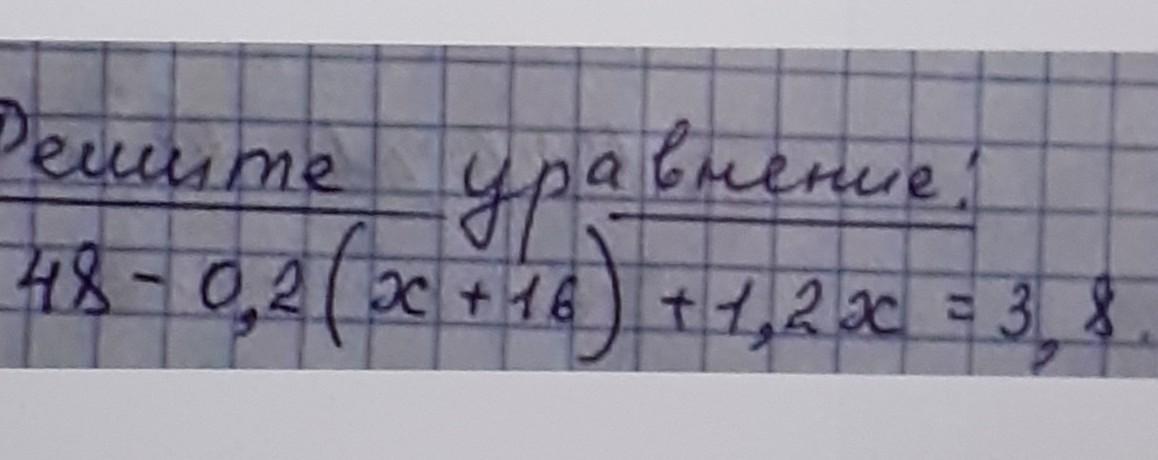 Решите уравнение:
48 - 0,2(x + 16) + 1,2x = 3,8.